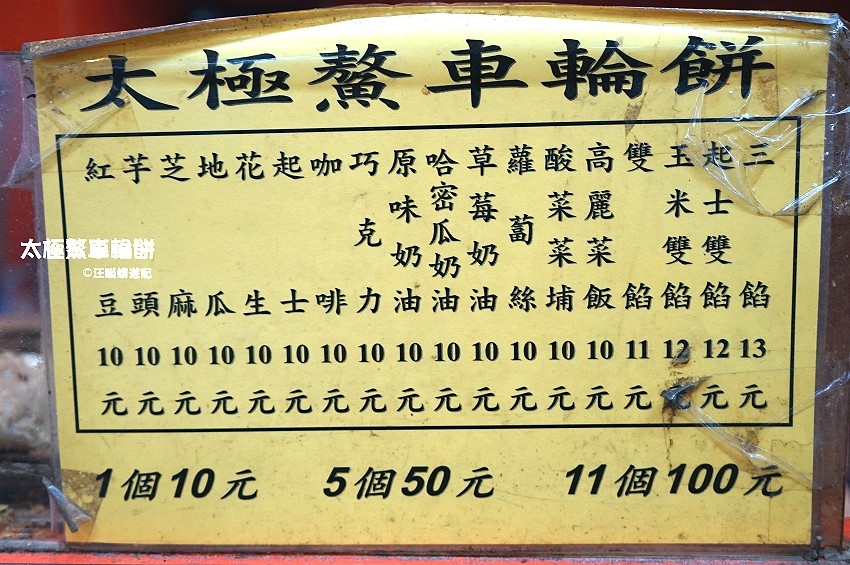 太極鰲車輪餅
紅豆10元
芋頭10元
芝麻10元
地瓜10元
花生10元
起士10元
咖啡10元
巧克力10元
原味奶油10元
哈密瓜奶油10元
草莓奶油10元
蘿蔔絲10元
酸菜菜埔10元
高麗菜飯10元
雙餡11元
玉米雙餡12元
起士雙餡12元
三餡13元
1個10元 5個50元 11個100元
太極鰲車輪餅